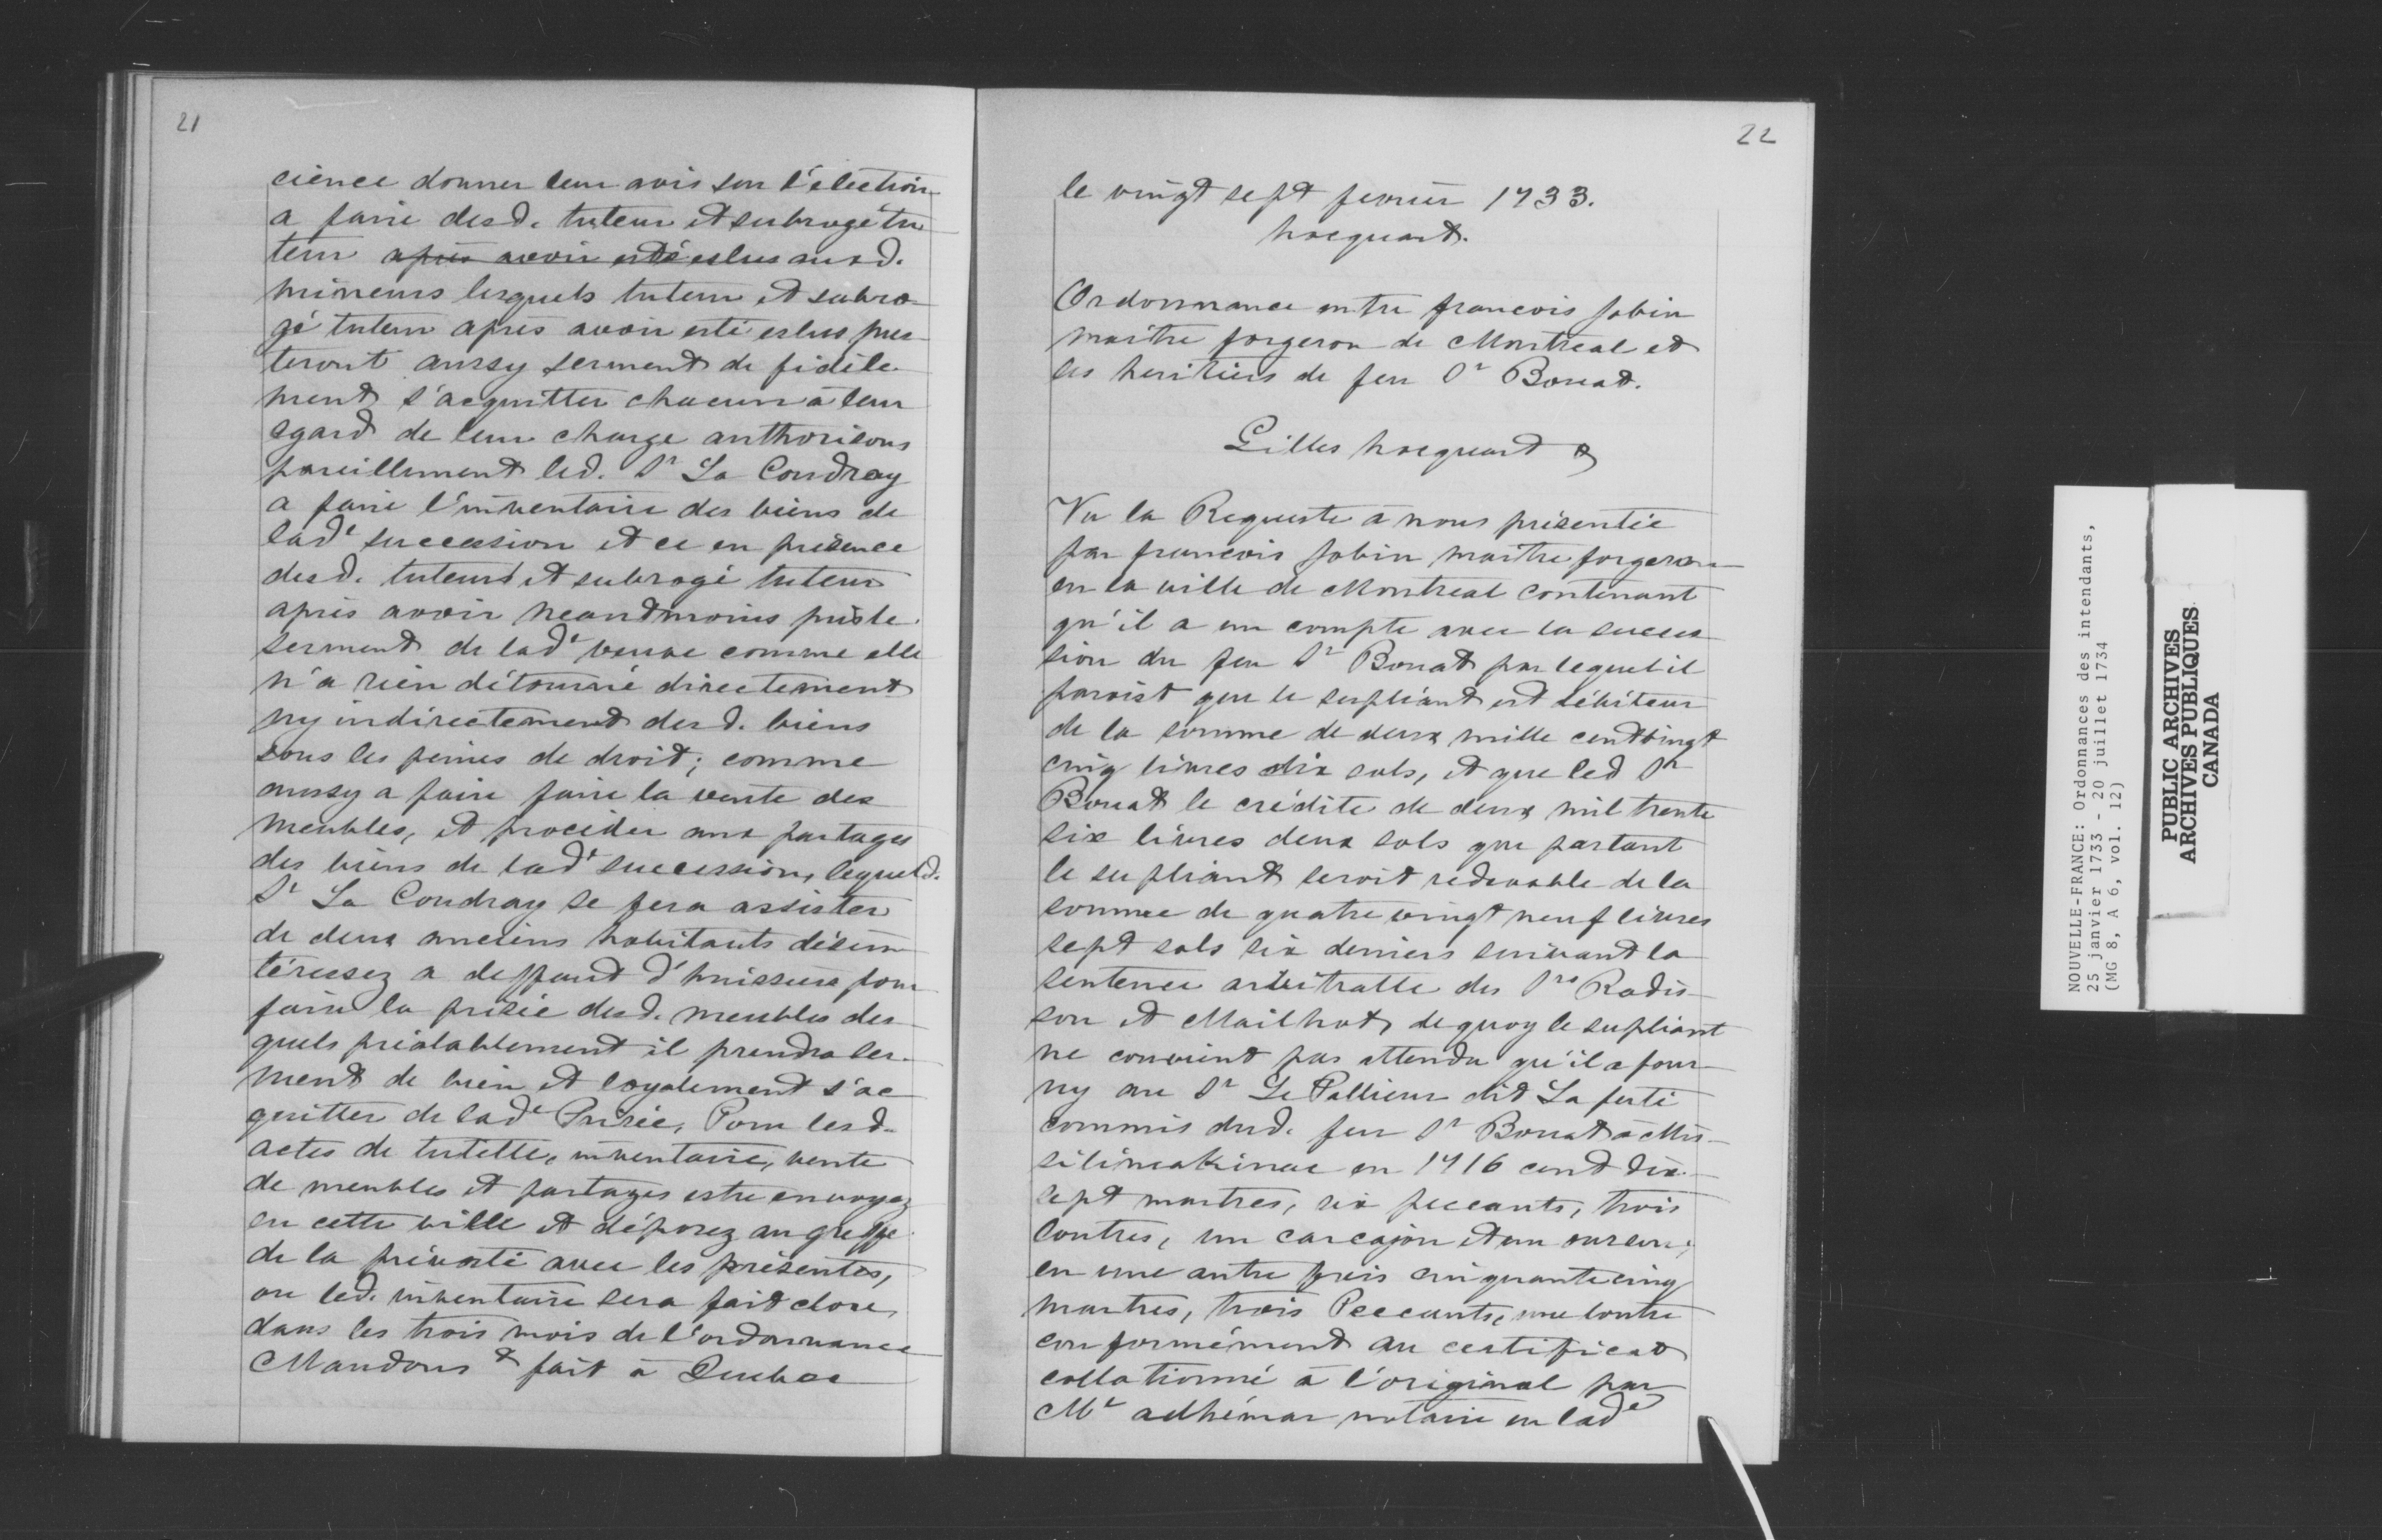 21
cience donner leur avis sur l'élection
a faire desd. tuteur et subrogé tu
teur après avoir esté eslus ausd.
mineurs lesquels tuteur et subro-
gé tuteur après avoir esté eslus pres
teront aussy serment de fidèle
ment s'acquitter chacun à leur
egard de leur charge authorisons
pareillement led. Sr La Coudray
a faire l'inventaire des biens de
lade succession et ce en présence
desd. tuteurs et subrogé tuteur
après avoir neandmoins pris le
serment de lade veuve comme elle
n'a rien détourné directement
ny indirectement desd. biens
sous les peines de droit; comme
aussy a faire faire la vente des
meubles, et procéder aux partages
des biens de lade succession, lequel d.
Sr La Coudray se fera assister
de deux anciens habitants désin
téressez a deffaut d'huissiers pour
faire la prisée desd. meubles des
quels préalablement il prendra ser-
ment de bien et loyalement s'ac
quitter de lade Prisée, Pour lesd.
actes de tutelle, inventaire, vente
de meubles et partages estre envoyez
en cette ville et déposez au greffe
de la prévosté avec les présentes,
ou led. inventaire sera fait clore
dans les trois mois de l'ordonnance
Mandons & fait à Quebec
22
le vingt sept fevrier 1733.
hocquart.
Ordonnance entre francois Jobin
maître forgeron de Montreal et
les heritiers de feu Sr Bouat.
Gilles hocquart &
Vu la Requeste a nous présentée
par francois Jobin maitre forgeron
en la ville de Montreal contenant
qu'il a un compte avec la succes
sion du feu Sr Bouat par lequel il
paroist que le supliant est débiteur
de la somme de deux mille cent vingt
cinq livres dix sols, et que led Sr
Bouat le crédite de deux mil trente
six livres deux sols que partant
le supliant seroit redevable de la
somme de quatre vingt neuf livres
sept sols six deniers suivant la
sentence arbitralle des Srs Radis-
son et Mailhot, de quoy le supliant
ne convient pas attendu qu'il a four-
ny au Sr Le Pallieur dit La ferté
commis dud. feu Sr Bouat à Mis-
silimakinac en 1716 cent dix
sept martres, six peccants, trois
loutres, un carcajou et un ourson;
en une autre fois cinquante cinq
martres, trois Peccants, une loutre
conformément au certificat
collationné à l'original par
Me adhémar notaire en lade
NOUVELLE-FRANCE: Ordonnances des intendants,
25 janvier 1733 - 20 juillet 1734
(MG 8, A 6, vol. 12)
PUBLIC ARCHIVES
ARCHIVES PUBLIQUES
CANADA